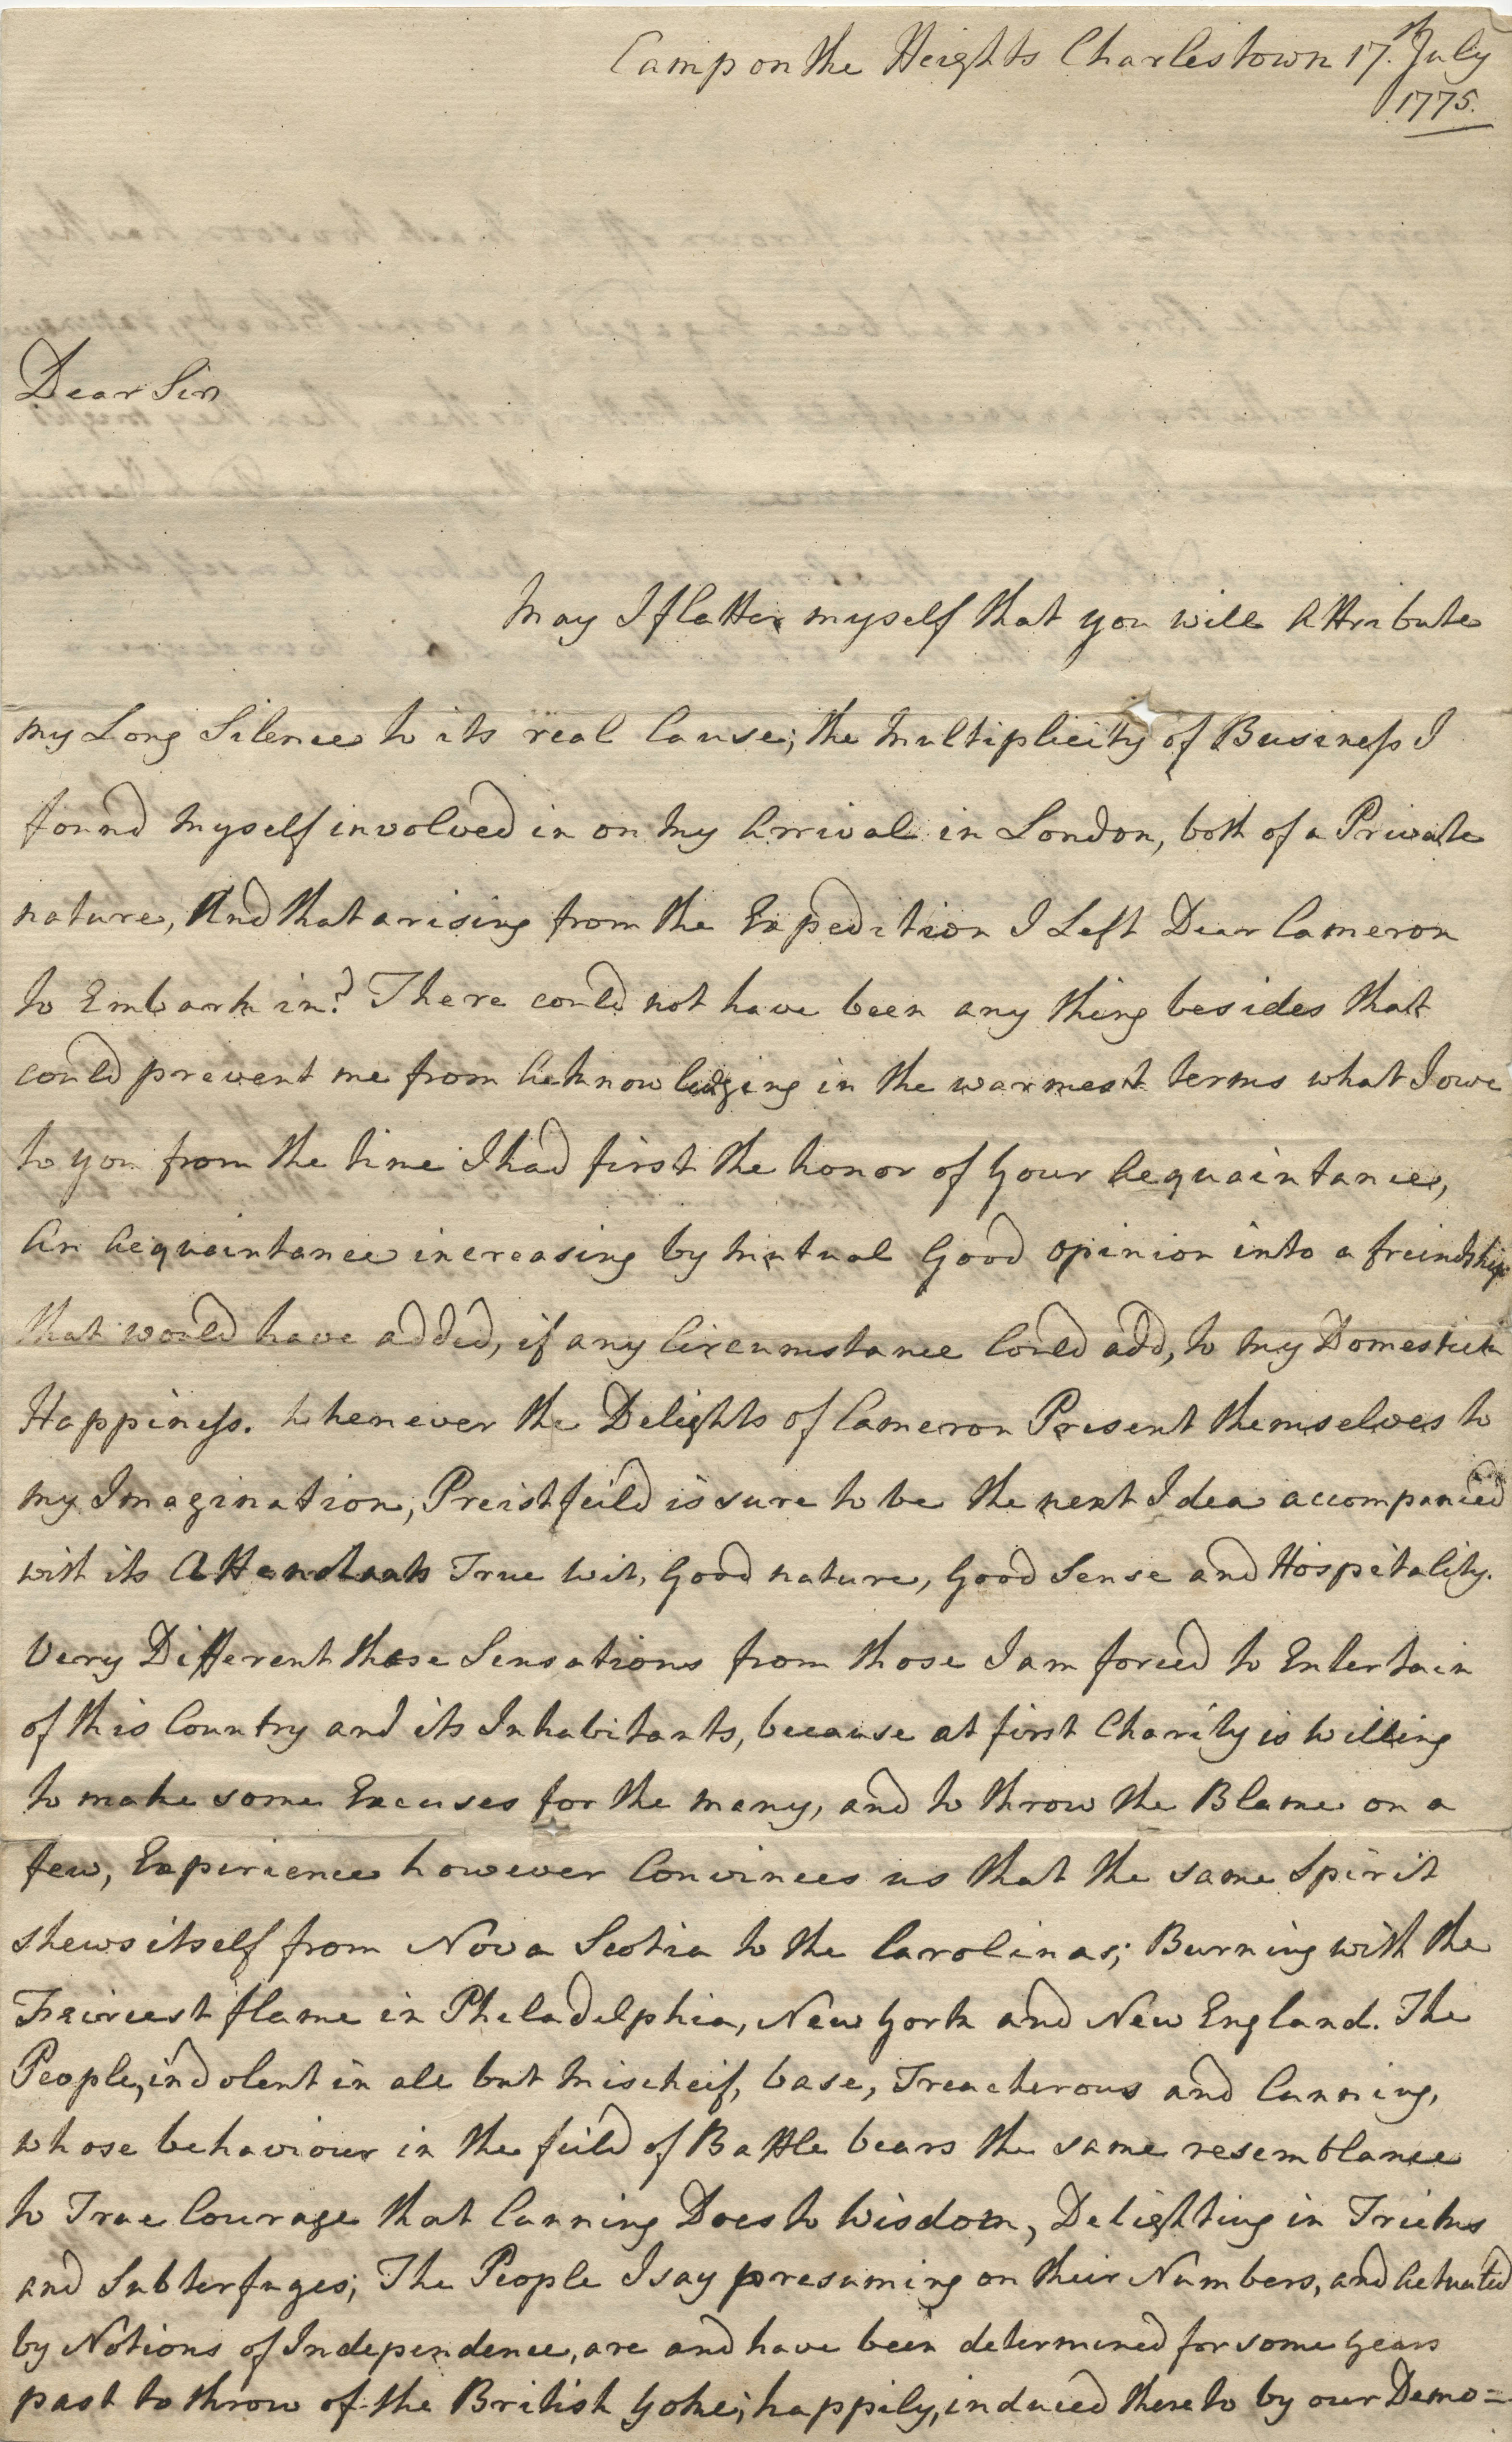 Camp on the Heights Charlestown 17th. July
1775.
Dear Sir
May I flatter myself that you will Attribute
my Long Silence to its real Cause; the Multiplicity of Business I
found myself involved in on my Arrival in London, both of a Private
nature, And that arising from the Expedition I Left Dear Cameron
to Embark in? There could not have been any thing besides that
could prevent me from Acknowledging in the warmest terms what I owe
to you from the time I had first the honor of your Acquaintance,
An Acquaintance increasing by mutual Good opinion into a freindship
that would have added, if any Circumstance Could add, to my Domestick
Happiness. Whenever the Delights of Cameron Present themselves to
my Imagination, Preistfeild is sure to be the next Idea accompanied
with its Attendants True wit, Good nature, Good Sense and Hospitality.
Very Different these Sensations from those I am forced to Entertain
of this Country and its Inhabitants, because at first Charity is willing
to make some Excuses for the many, and to throw the Blame on a
few, Expirience however Convinces us that the same Spirit
shews itself from Nova Scotia to the Carolinas; Burning with the
Feircest flame in Philadelphia, New York and New England. The
People, indolent in all but Mischeif, base, Treacherous and Cunning,
whose behaviour in the feild of Battle bears the same resemblance
to True Courage that Cunning Does to Wisdom, Delighting in Tricks
and Subterfuges; The People I say presuming on their Numbers, and Actuated
by Notions of Independence, are and have been determined for some years
past to throw of the British Yoke; happily, induced there to by our Demo=